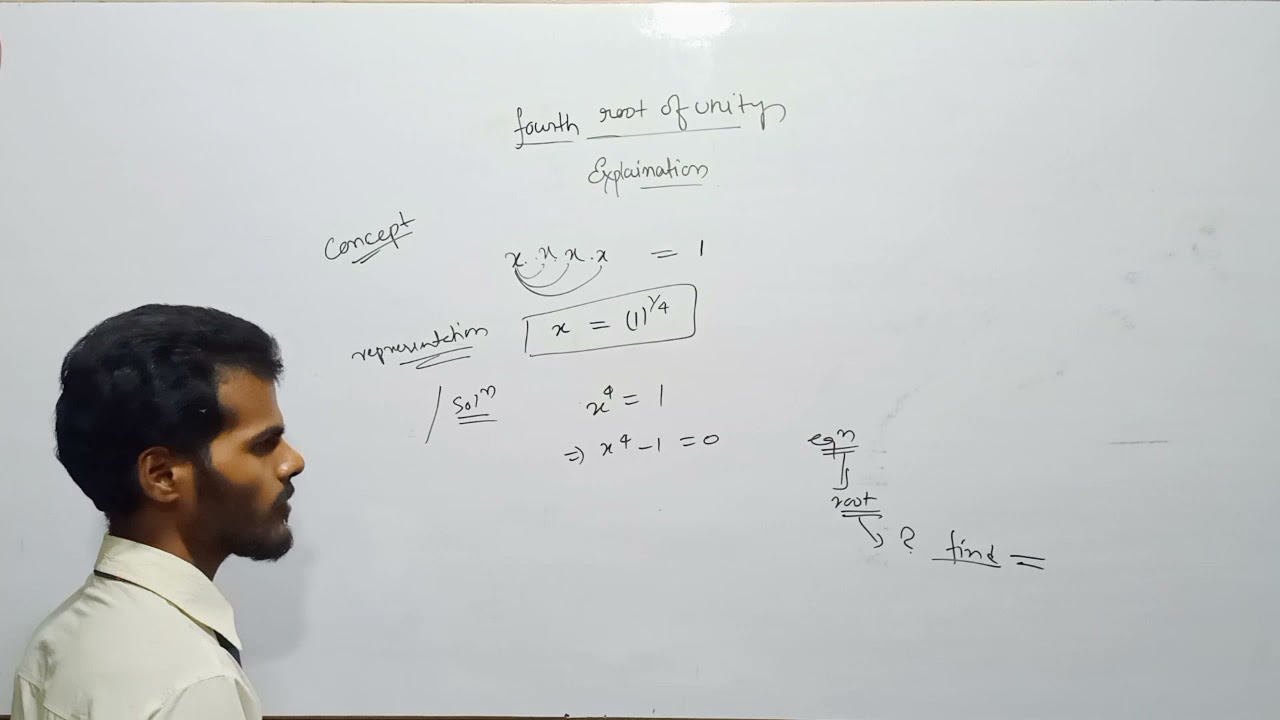 fourth root of unity
Explaination
concept
x . x . x . x = 1
representation
x = (1)^1/4
/ Solⁿ
x⁴ = 1
⇒ x⁴ - 1 = 0
eqⁿ
root
? find =